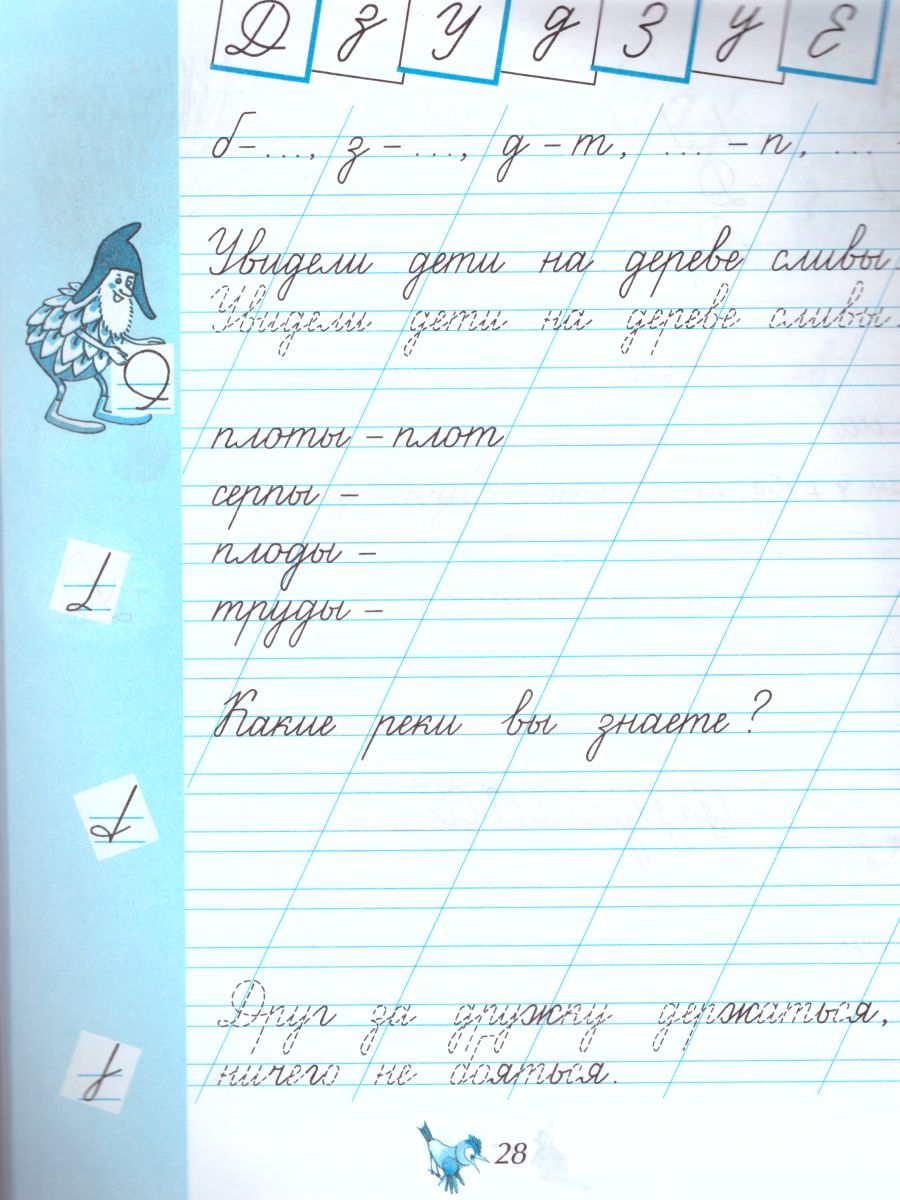 Д З У д З у Е
б – ..., з – ..., д – т, ... – п, ... -
Увидели дети на дереве сливы.
Увидели дети на дереве сливы.
плоты – плот
серпы –
плоды –
труды –
Какие реки вы знаете?
Друг за дружку держаться,
ничего не бояться.
28